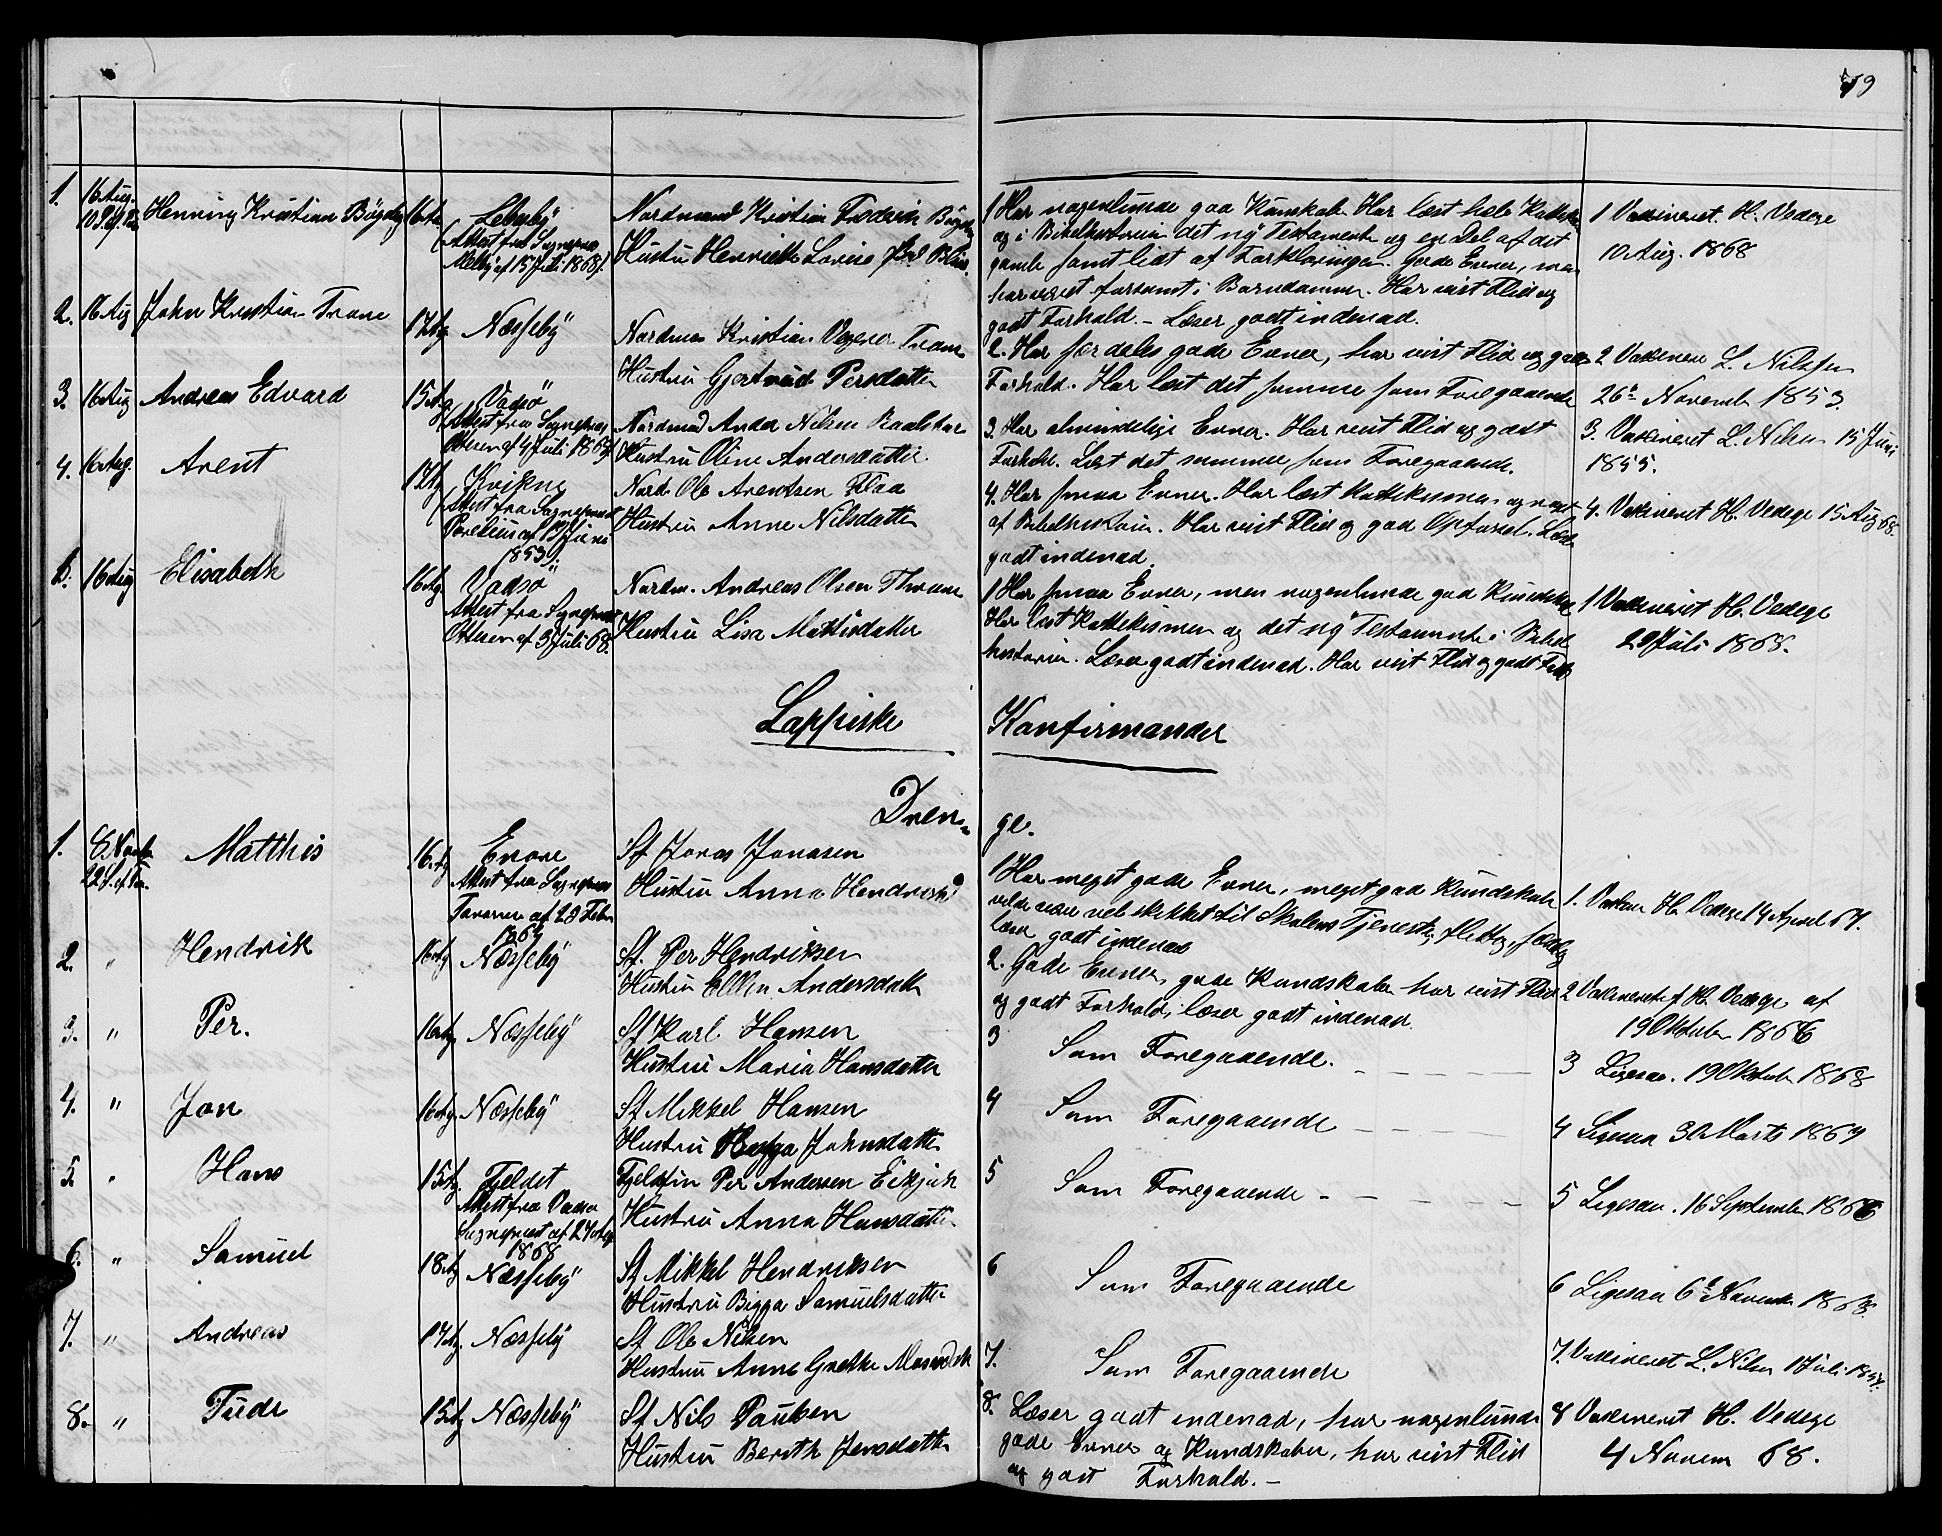 79
1. 16 Aug. 10 S. ef. Tr. Henning Kristian 16 Aar Lebesby Nordmand Kristian Frederik
(Attest fra Sognepræst
af 15 Juli 1868). Hustru Henriette Lovise
1 Har nogenlunde god Kundskab. Har læst hele
og i Bibelhistorien det ny Testamente og en Del af det
gamle samt lidt af Forklaringen. Gode Evner, men
har været forsømt i Barndommen. Har vist Flid og
godt Forhold. – Læser godt indenad.
1 Vakcineret. H. Vedege
10 Aug. 1868
2. 16 Aug John Kristian Trane 17 Næsseby Nordmand Kristian Trane
Hustru Gjertrud Persdatter
2. Har særdeles gode Evner, har vist Flid og godt
Forhold. Har læst det samme som Foregaaende
2 Vakcineret L. Nilssen
26 Novemb 1853.
3. 16 Aug Andreas Edvard 15 Vadsö
(Attest fra Sognepræst
af 4 Juli 1868) Nordmand Ander Nilsen
Hustru Oline Andersdatter
3. Har almindelige Evner. Har vist Flid og godt
Forhold. Læst det samme som Foregaaende.
3. Vakcineret L. Nilsen 15 Juni
1855.
4. 16 Aug. Arent 17 Kvikne
(Attest fra Sognepræst
af 13 Juni
1853) Nord. Ole Arentsen Flaa
Hustru Anne Nilsdatter
4. Har smaa Evner. Har læst Kattekismen og noget
af Bibelhistorien. Har vist Flid og god Opførsel. Læser
godt indenad.
4. Vakcineret H. Vedege 15 Aug 68.
1. 16 Aug Elisabeth 16 Vadsö
Attest fra Sognepræst
af 3 Juli 68. Nordm. Andreas Olsen Thrane
Hustru Lisa Mattisdatter
1 Har smaa Evner, men nogenlunde god Kundskab
Har læst Kattekismen og det ny Testamente i Bibel
historien. Læser godt indenad. Har vist Flid og godt Forh
1 Vakcineret H. Vedege
29 Juli 1868.
Lappiske Konfirmander
Dren-
ge.
1. 8. Novb. 22 S. ef. Tr. Matthis 16 Enare
Attest fra Sognepræst
af 28 Febr
Sf Jonas Jonasen
Hustru Anna Hendriksd
1 Har meget gode Evner, meget god Kundskab
vilde være vel skikket til Skolens Tjeneste, flittig,
læser godt indenad
1. Vakcin H. Vedege 14 April 64.
2. " Hendrik 16 Næsseby Sf. Per Hendriksen
Hustru Ellen Andersdatter
2. Gode Evner, gode Kundskaber har vist Flid
og godt Forhold, læser godt indenad.
2 Vakcineret af H. Vedege af
19 Oktober 1868
3. " Per. 16 Næsseby Sf Karl Hansen
Hustru Maria Hansdatter
3 Som Foregaaende.
3 Ligesaa. 19 Oktober 1868
4. " Jon 16 Næsseby Sf Mikkel Hansen
Hustru Johnsdatter
4 Som Foregaaende
4 Ligesaa 30 Marts 1864
5. " Hans 15 Fjeldet
Attest fra Vadsö
Sognepræst af 27 Aug
1868 Fjeldfin Per Andersen
Hustru Anna Hansdatter
5 Som Foregaaende
5 Ligesaa. 16 September 1868
6. " Samuel 18 Næsseby Sf Mikkel Hendriksen
Hustru Bigga Samuelsdatter
6 Som Foregaaende
6 Ligesaa 6 November 1868.
7. " Andreas 17 Næsseby Sf Ole Nilsen
Hustru Anne Grethe
7. Som Foregaaende
7. Vakcineret L. Nilsen 1 Juli
8. " Fude 15 Næsseby Sf Nils Paulsen
Hustru Berith Jensdatter
8. Læser godt indenad, har nogenlunde
gode Evner og Kundskaber, har vist Flid
og godt Forhold. –
8 Vakcineret H. Vedege
4 Novem 68.